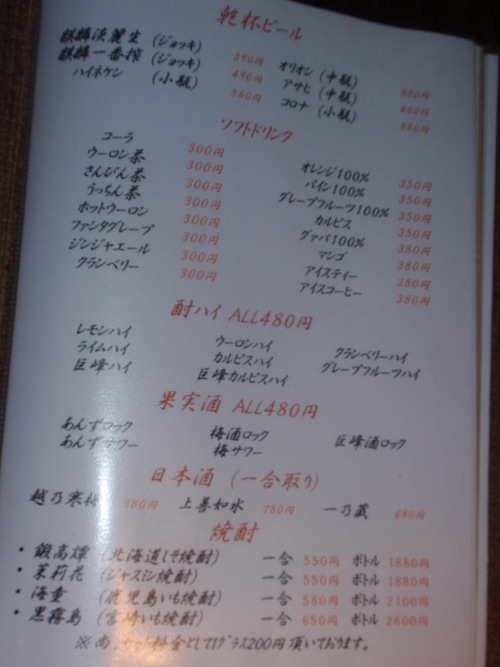 乾杯ビール
麒麟淡麗生 (ジョッキ) 390円
麒麟一番搾 (ジョッキ) 490円
ハイネケン (小瓶) 580円
オリオン (中瓶) 580円
アサヒ (中瓶) 680円
コロナ (小瓶) 580円
ソフトドリンク
コーラ 300円
ウーロン茶 300円
さんぴん茶 300円
うっちん茶 300円
ホットウーロン 300円
ファンタグレープ 300円
ジンジャエール 300円
クランベリー 300円
オレンジ100% 350円
パイン100% 350円
グレープフルーツ100% 350円
カルピス 350円
グァバ100% 380円
マンゴ 380円
アイスティー 380円
アイスコーヒー 380円
酎ハイ ALL480円
レモンハイ ウーロンハイ クランベリーハイ
ライムハイ カルピスハイ グレープフルーツハイ
巨峰ハイ 巨峰カルピスハイ
果実酒 ALL480円
あんずロック 梅酒ロック 巨峰酒ロック
あんずサワー 梅サワー
日本酒 (一合取り)
越乃寒梅 980円 上善如水 780円 一乃蔵 680円
焼酎
・鍛高譚 (北海道しそ焼酎) 一合 550円 ボトル 1880円
・茉莉花 (ジャスミン焼酎) 一合 550円 ボトル 1880円
・海童 (鹿児島いも焼酎) 一合 580円 ボトル 2100円
・黒霧島 (宮崎いも焼酎) 一合 650円 ボトル 2600円
※尚、セット料金として1グラス200円頂いております。